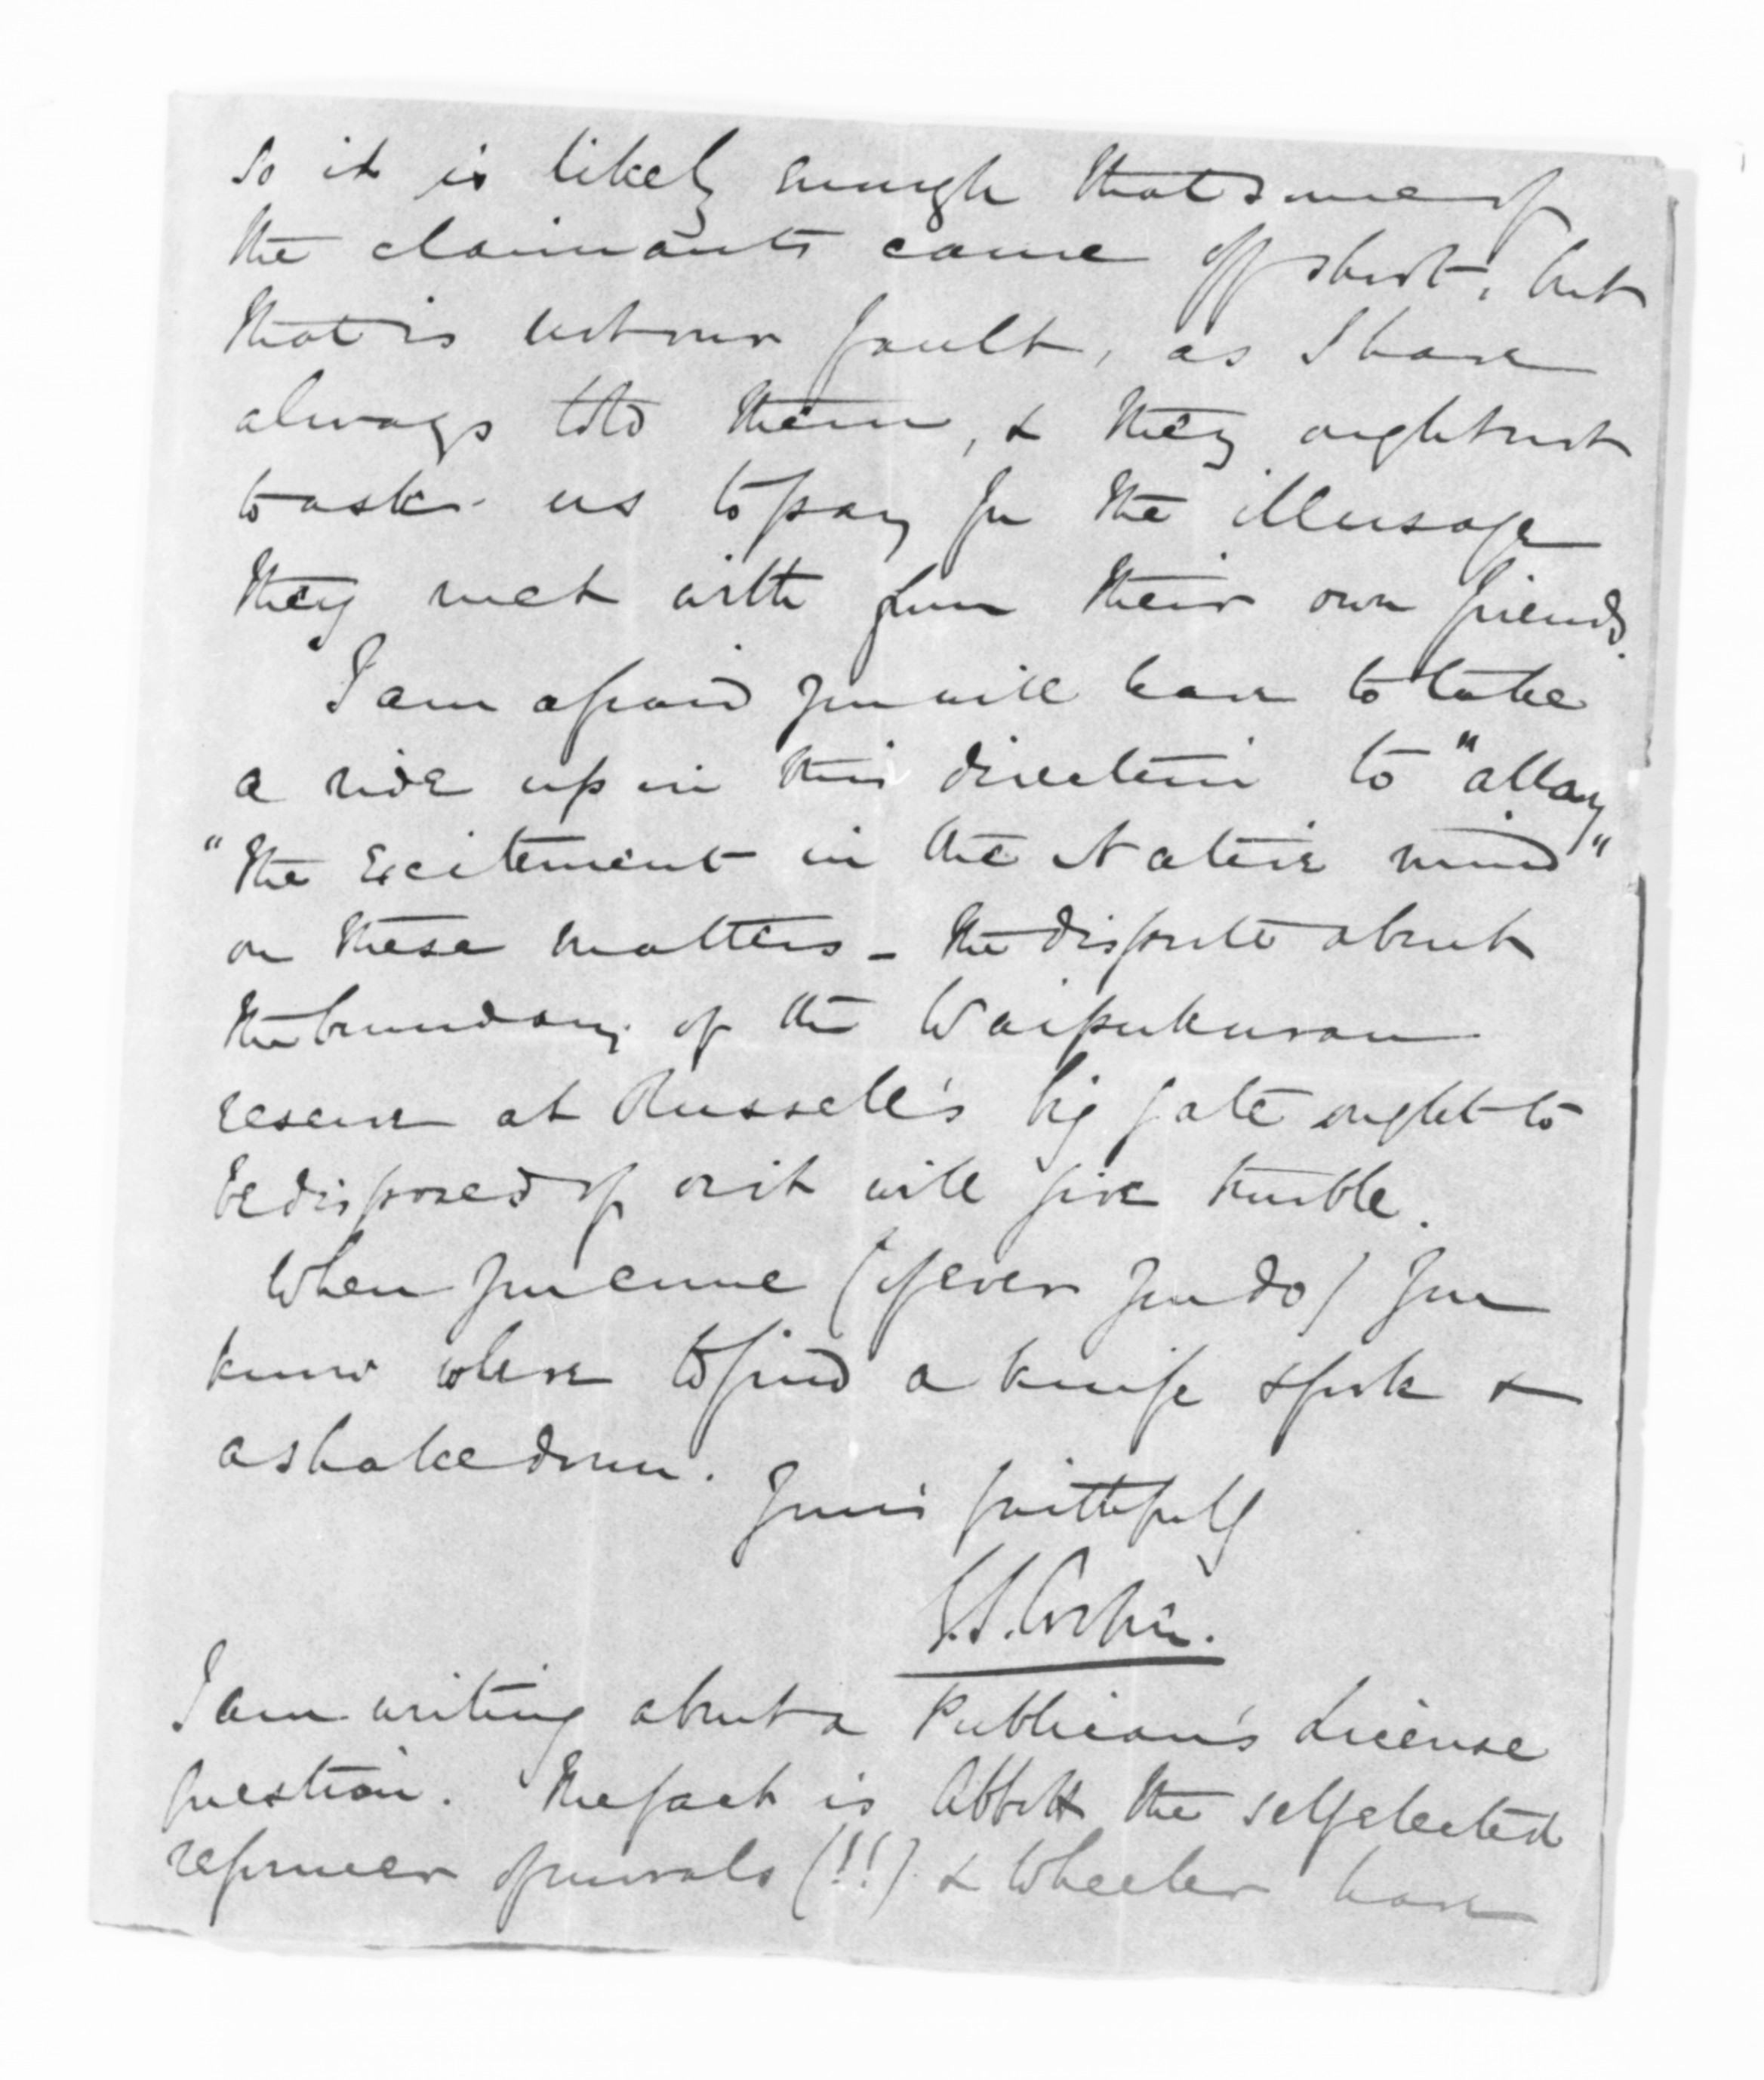 So it is likely enough that some of
the claimants came off short, but
that is not our fault, as I have
always told them, & they ought not
to ask us to pay for the illusage
they met with from their own friends.
I am afraid you will have to take
a ride up in this direction to "allay
"the Excitement in the Native mind"
on these matters - the dispute about
the boundary of the Waipukurau
reserve at Russell's big gate ought to
be disposed of or it will give trouble.
When you come (if ever you do) you
know where to find a knife & fork &
a shakedown.
Yours faithfully
G.S. Cooper.
I am writing about a Publican's License
question. The fact is Abbott the selfelected
reformer of morals (!!) & Wheeler have